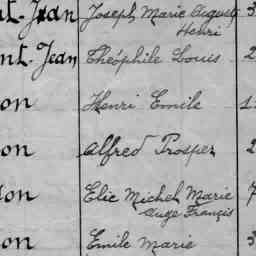 nt-Jean Joseph Marie Auguste 3
Henri
nt-Jean Théophile Louis 2
on Henri Emile 1
on Alfred Prosper 2
on Elie Michel Marie 7
Ange François
on Emile Marie 3